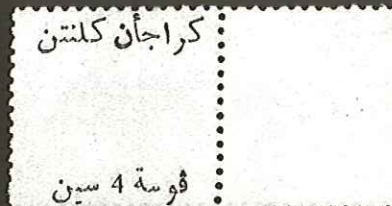 كراجأن كلنتن
ڤوسة 4 سين